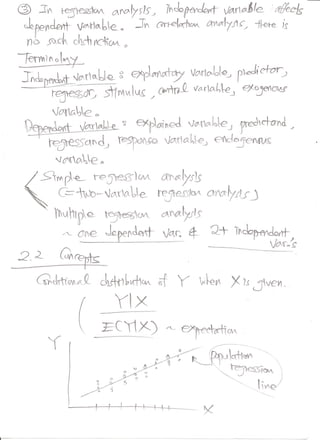 ③ In regression analysis, Independent variable affects
dependent variable. In correlation analysis, there is
no such distinction.
Terminology
Independent variable : explanatory variable, predictor,
regressor, stimulus, control variable, exogenous
variable.
Dependent variable : explained variable, predictand,
regressand, response variable, endogenous
variable.
Simple regression analysis
(= two-variable regression analysis)
Multiple regression analysis
~ one dependent var. & 2+ Independent
Var.'s
2.2 Concepts
Conditional distribution of Y when X is given.
Y|X
E(Y|X) ~ expectation
Y
population
regression
line
X